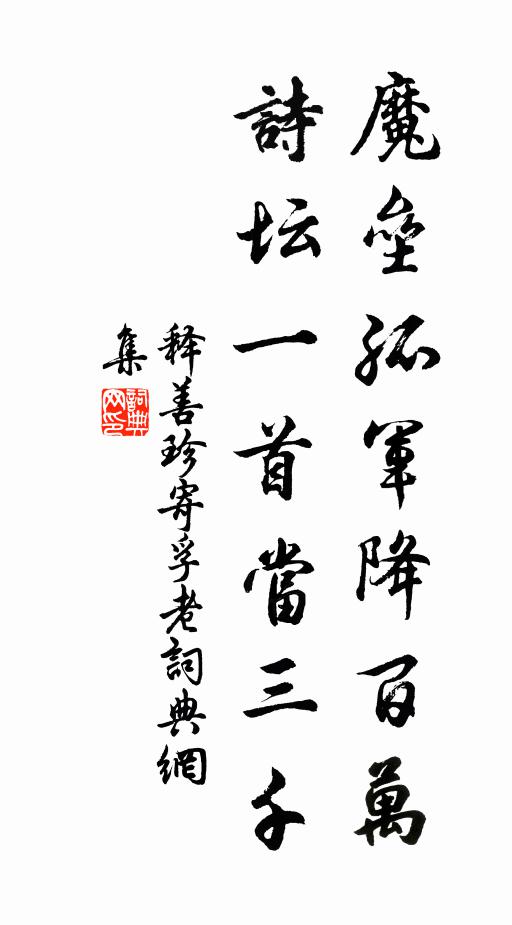 魔壘孤軍降百萬
詩坛一首當三千
释善珍寄孚老詞典網
集
詞典网印